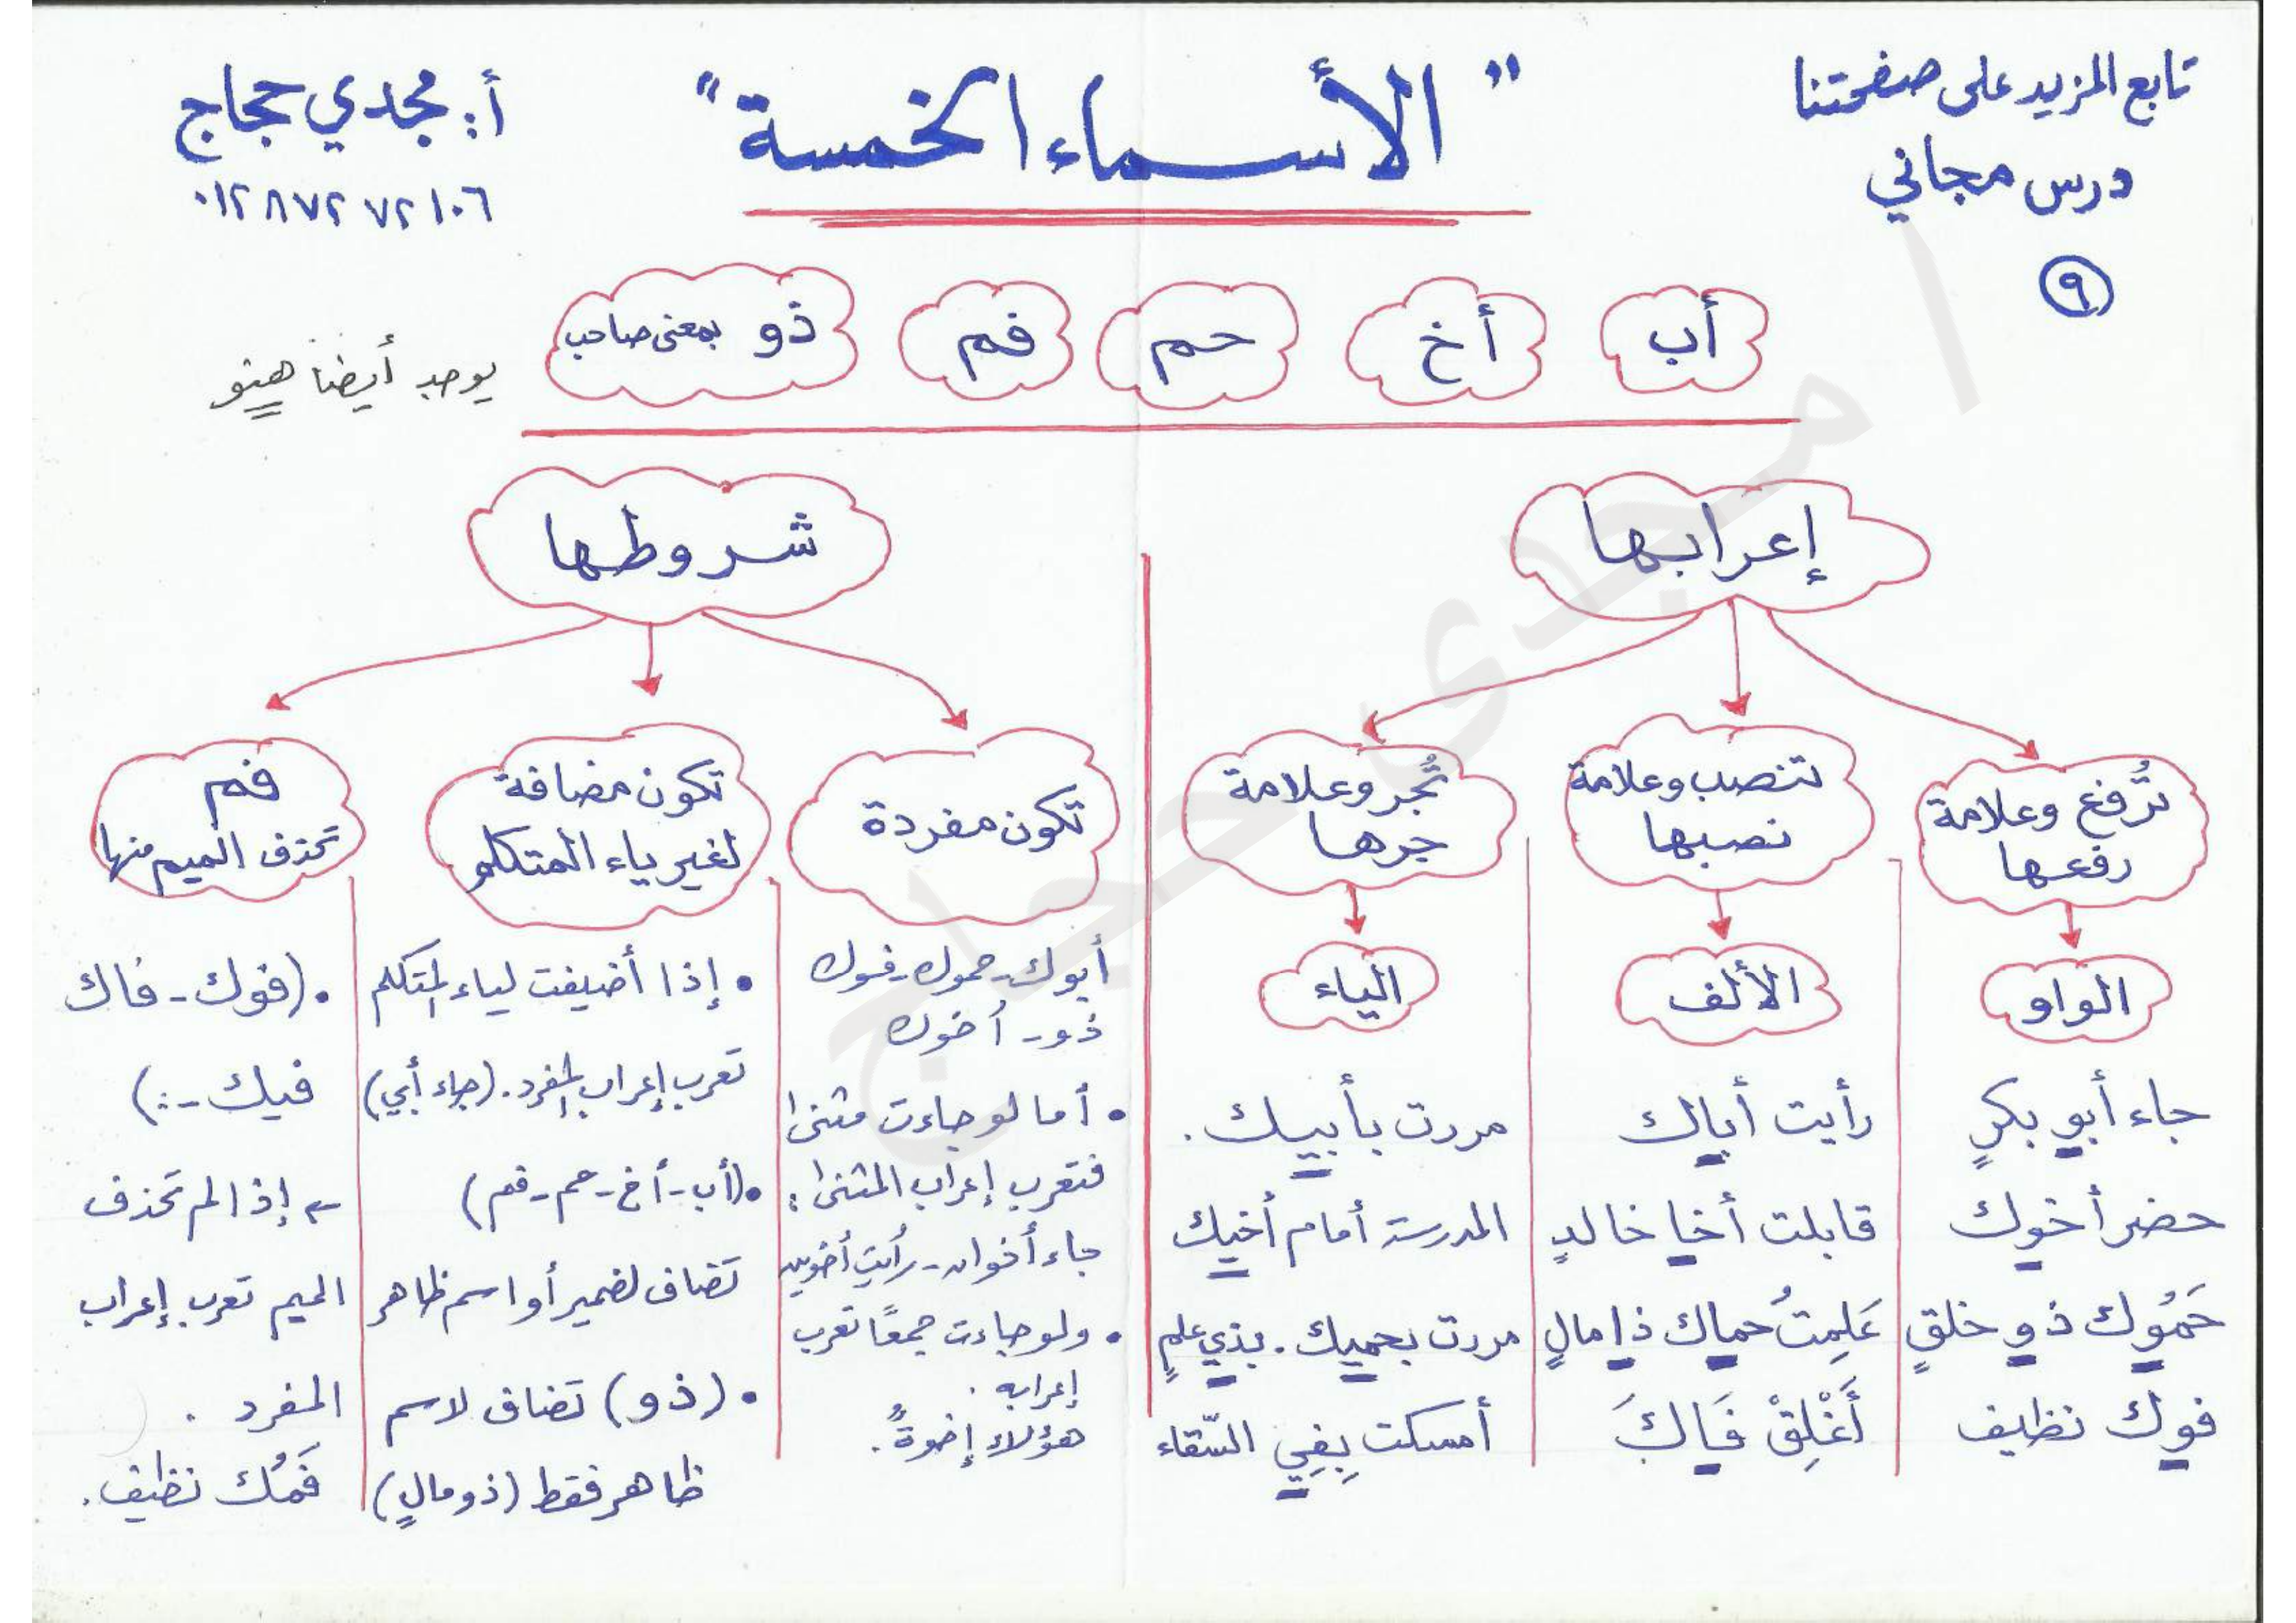 تابع المزيد على صفحتنا
درس مجاني
٩
" الأسماء الخمسة "
أ: مجدي حجاج
٠١٢٨٧٢٧٢١٠٦
أب
أخ
حم
فم
ذو بمعنى صاحب
يوجد أيضا هنو
إعرابها
تُرفع وعلامة
رفعها
الواو
جاء أبو بكرٍ
حضر أخوك
حَمُوك ذو خلقٍ
فوك نظيف
تنصب وعلامة
نصبها
الألف
رأيت أباك
قابلت أخا خالدٍ
عَلِمتُ حماك ذا مالٍ
أَغْلِقْ فَاكَ
تُجر وعلامة
جرها
الياء
مررت بأبيك.
المدرسة أمام أخيك
مررت بحميك. بذي علمٍ
أمسكت بِفِي السّقاء
شروطها
تكون مفردة
أبوك-حموك-فوك
ذو- أخوك
• أما لو جاءت مثنى
فتعرب إعراب المثنى:
جاء أخوان-رأيت أخوين
• ولو جاءت جمعًا تعرب
إعرابه.
هؤلاء إخوةٌ.
تكون مضافة
لغير ياء المتكلم
• إذا أضيفت لياء المتكلم
تعرب إعراب المفرد. (جاء أبي)
•(أب-أخ-حم-فم)
تضاف لضمير أو اسم ظاهر
• (ذو) تضاف لاسم
ظاهر فقط (ذو مالٍ)
فم
تحذف الميم منها
• (فوك - فاك
فيك -..)
← إذا لم تحذف
الميم تعرب إعراب
المفرد .
فَمُك نظيف.
ا مجدى حجاج